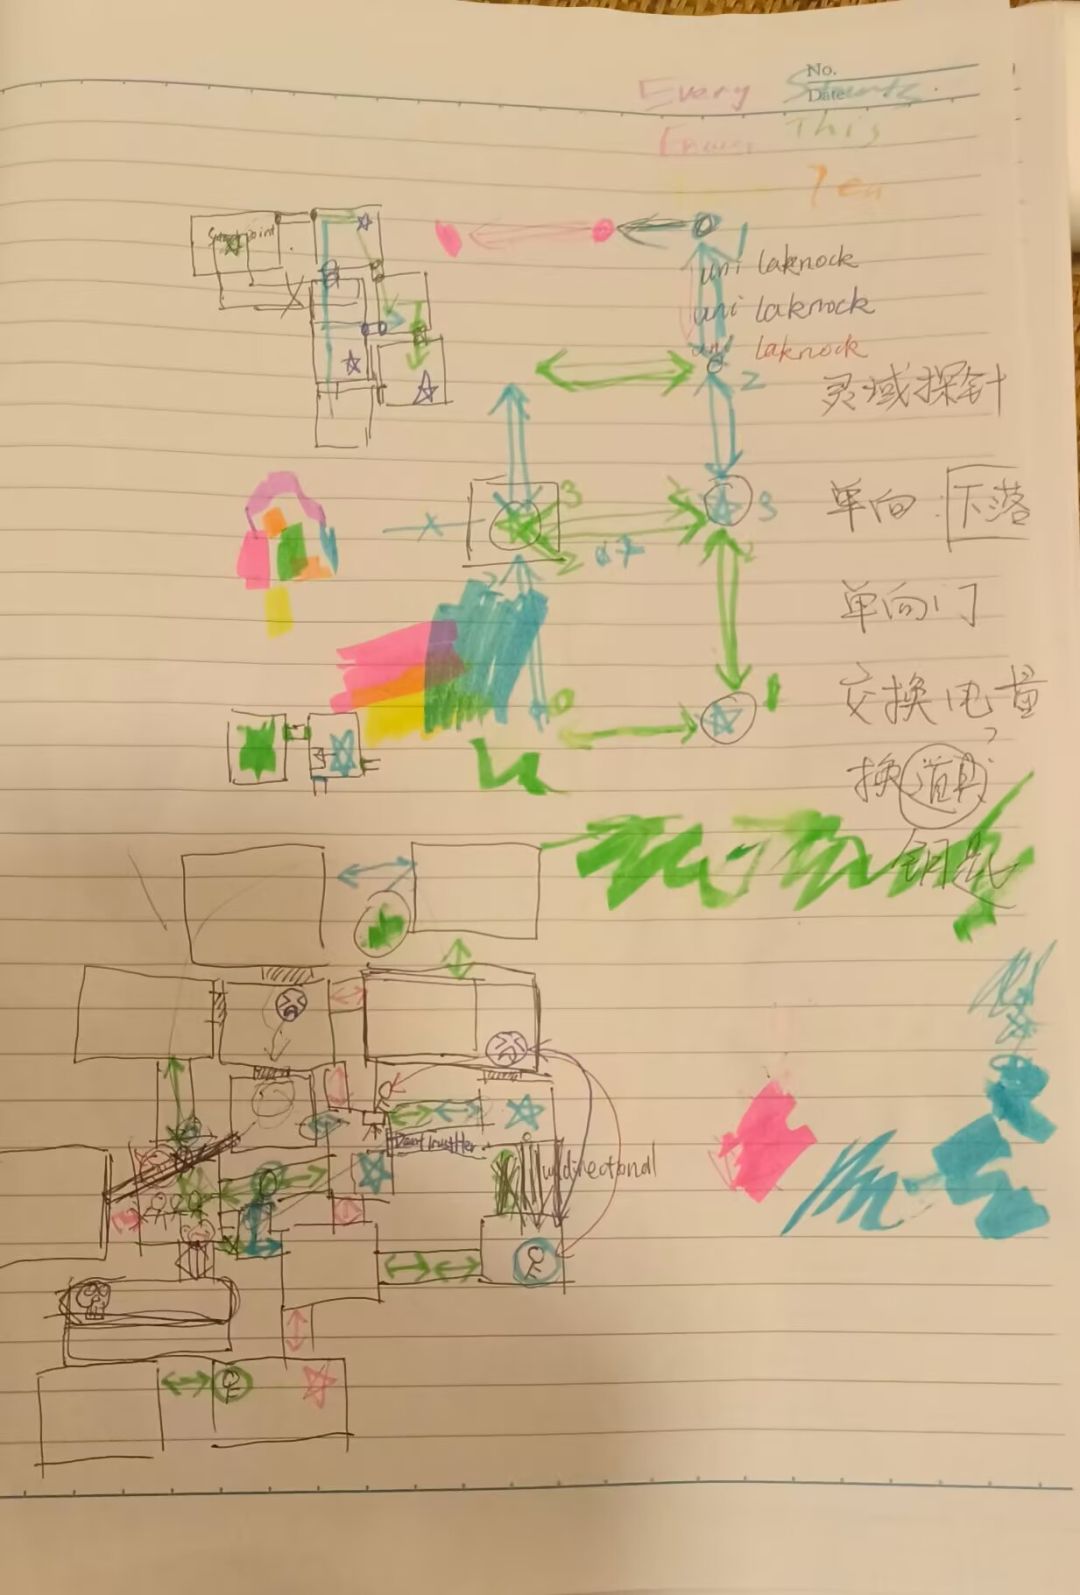 No.
Every
Date
This
uni laknock
uni laknock
uni laknock
2
灵域探针
3
3
单向：下落
2
2
单向门
交换电量
换道具
?
钥匙
Dont trust Her
unidirectional